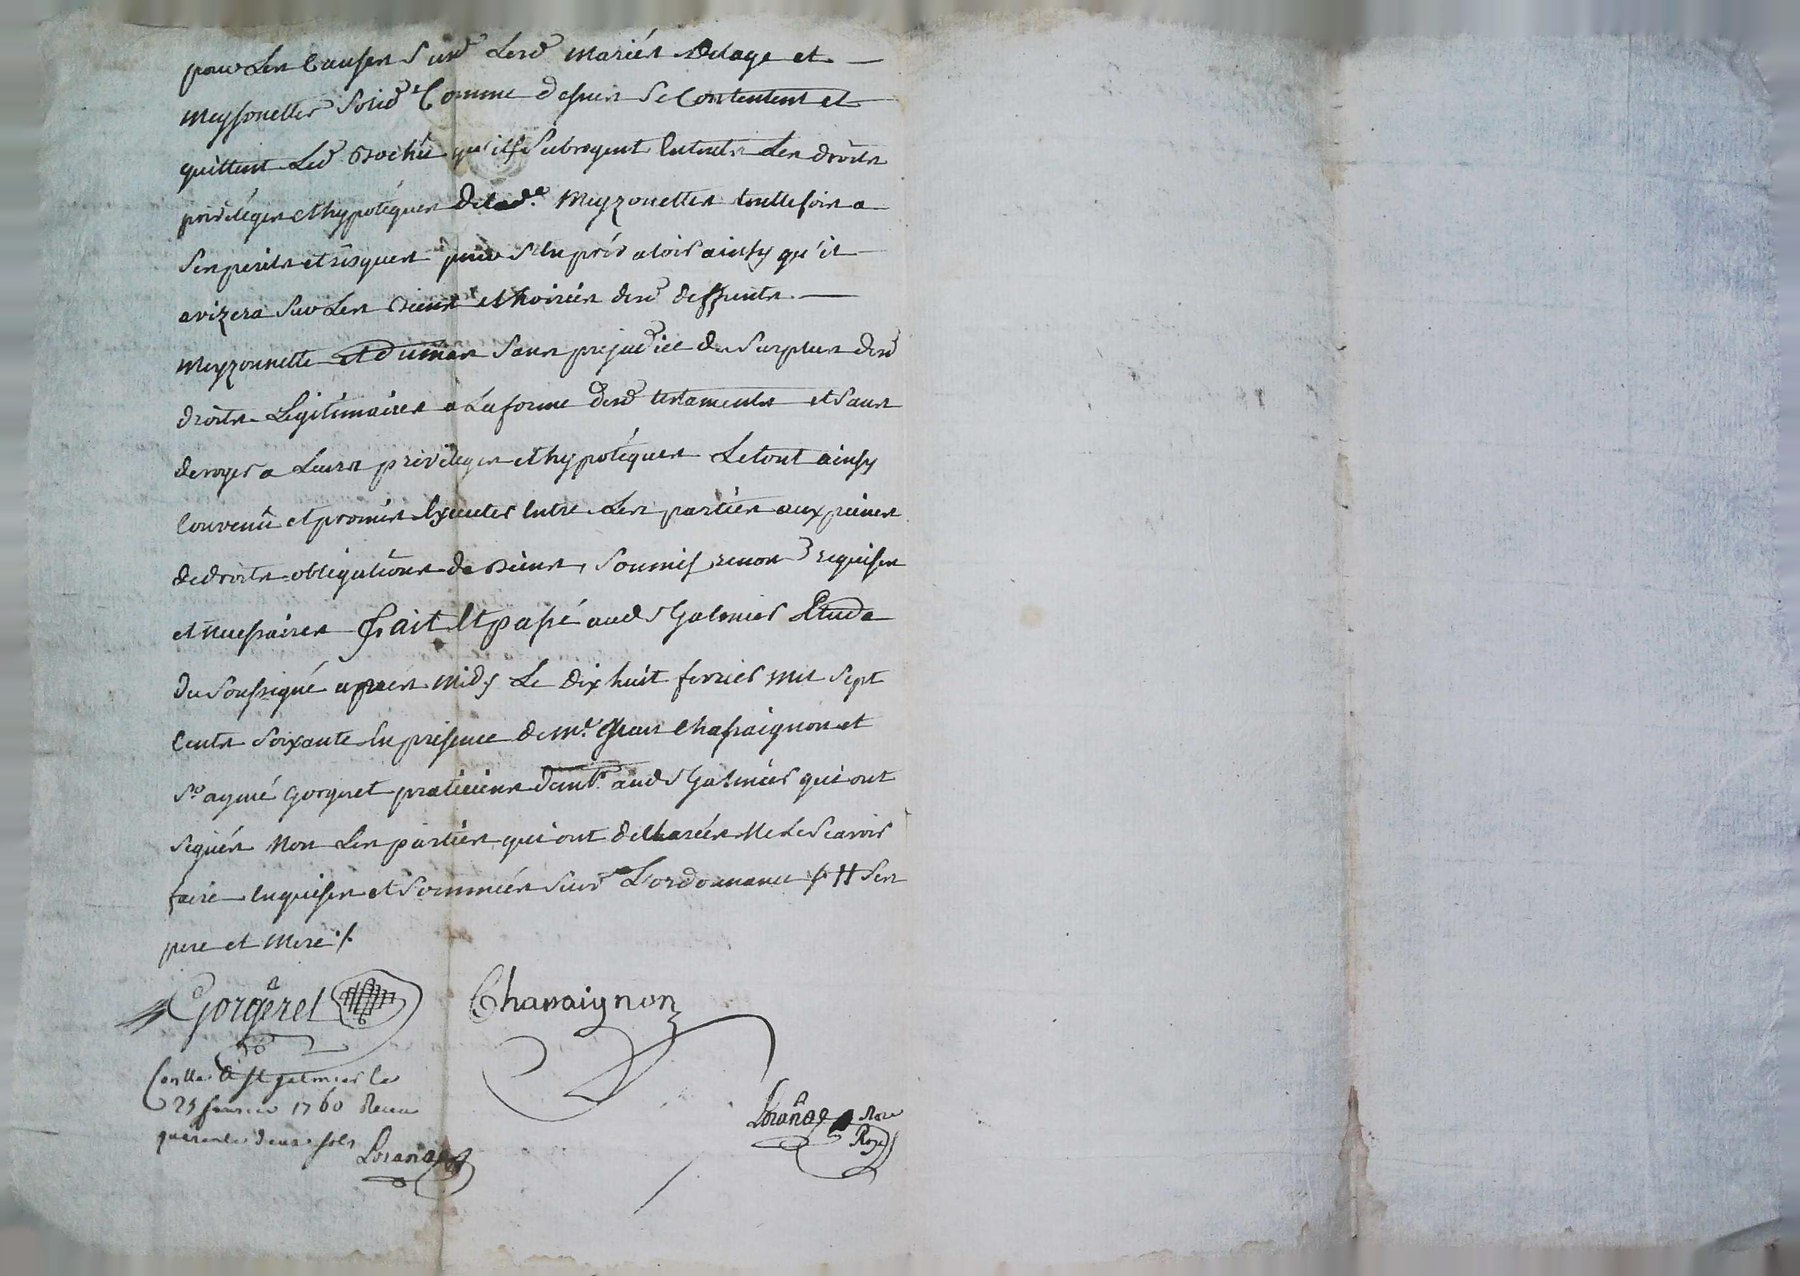 pour les causes susd lesd mariés Delage et
Meysonettes solid comme dessus se contentent et
quittent led Broché qu'ils subrogent en touts les droits
privileges et hypotéques de lad.e Meyzonettes touttefois a
ses perils et risques pour s'en prévaloir ainsy qu'il
avizera sur les biens et hoiries desd deffunts
Meyzonnette et Dumas sans prejudice du surplus desd
droits legitimaires a la forme desd testaments et sans
deroger a leurs privileges et hypotéques le tout ainsy
convenû et promis éxécuter entre les parties aux peines
de droits obligations de biens, soumis, renon requises
et necessaires fait et passé aud St Galmier Etude
du soussigné aprés midy le dix huit fevrier mil sept
cents soixante en présence de Mr Jean Chassaignon et
Sr aymé Gorgeret praticiens aud St Galmier qui ont
signés non les parties qui ont declarées ne le scavoir
faire enquises et sommées suivt l'ordonnance /. # ses
pere et mere /.
Gorgeret Chassaignon
Conlle a St galmier le
25 fevrier 1760 Receu
quarente deux sols